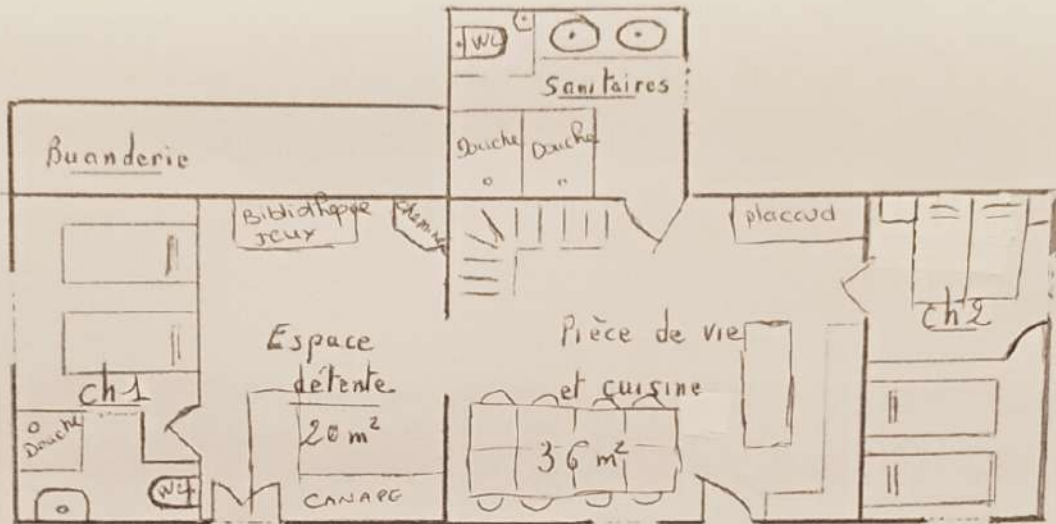 WC
Sanitaires
Douche
Douche
Buanderie
Bibliothèque
JEUX
Chemine
placcud
Espace
détente
20 m²
Pièce de vie
et cuisine
36 m²
ch1
ch2
Douche
WC
CANAPE